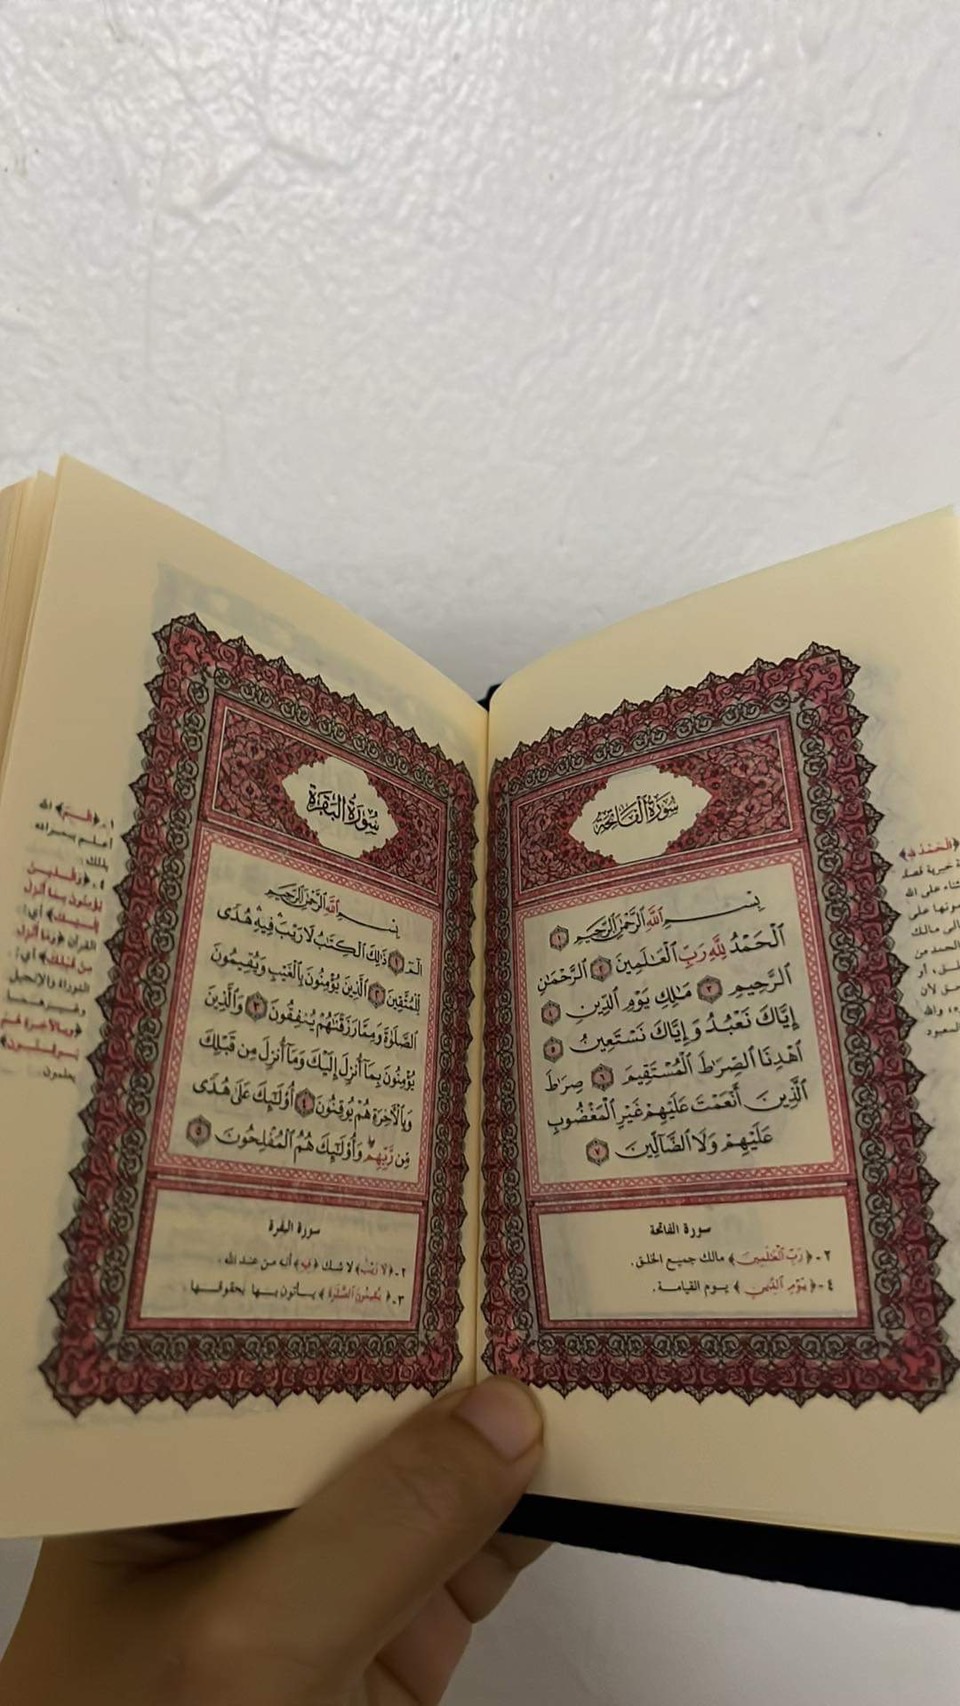 سُورَةُ الْفَاتِحَةِ
بِسْمِ اللَّهِ الرَّحْمَٰنِ الرَّحِيمِ ١
الْحَمْدُ لِلَّهِ رَبِّ الْعَالَمِينَ ٢ الرَّحْمَٰنِ
الرَّحِيمِ ٣ مَالِكِ يَوْمِ الدِّينِ ٤
إِيَّاكَ نَعْبُدُ وَإِيَّاكَ نَسْتَعِينُ ٥
اهْدِنَا الصِّرَاطَ الْمُسْتَقِيمَ ٦ صِرَاطَ
الَّذِينَ أَنْعَمْتَ عَلَيْهِمْ غَيْرِ الْمَغْضُوبِ
عَلَيْهِمْ وَلَا الضَّالِّينَ ٧
سورة الفاتحة
٢-﴿رَبِّ الْعَٰلَمِينَ﴾ مالك جميع الخلق.
٤-﴿يَوْمِ الدِّينِ﴾ يوم القيامة.
﴿الْحَمْدُ لِلَّهِ﴾
خبرية قصد
على الله
لأن
والله
سُورَةُ الْبَقَرَةِ
بِسْمِ اللَّهِ الرَّحْمَٰنِ الرَّحِيمِ
الٓمٓ ١ ذَٰلِكَ الْكِتَٰبُ لَا رَيْبَ فِيهِ هُدًى
لِّلْمُتَّقِينَ ٢ الَّذِينَ يُؤْمِنُونَ بِالْغَيْبِ وَيُقِيمُونَ
الصَّلَوٰةَ وَمِمَّا رَزَقْنَٰهُمْ يُنفِقُونَ ٣ وَالَّذِينَ
يُؤْمِنُونَ بِمَآ أُنزِلَ إِلَيْكَ وَمَآ أُنزِلَ مِن قَبْلِكَ
وَبِالْآخِرَةِ هُمْ يُوقِنُونَ ٤ أُولَٰٓئِكَ عَلَىٰ هُدًى
مِّن رَّبِّهِمْ وَأُولَٰٓئِكَ هُمُ الْمُفْلِحُونَ ٥
سورة البقرة
٢-﴿لَا رَيْبَ﴾ لا شك ﴿فِيهِ﴾ أنه من عند الله.
٣-﴿يُقِيمُونَ الصَّلَوٰةَ﴾ يأتون بها بحقوقها
١-﴿الٓمٓ﴾ الله
أعلم بمراده
بذلك.
٤-﴿وَالَّذِينَ
يُؤْمِنُونَ بِمَا أُنزِلَ
إِلَيْكَ﴾ أي:
القرآن ﴿وَمَا أُنزِلَ
مِن قَبْلِكَ﴾ أي:
التوراة والإنجيل
وغيرهما
﴿وَبِالْآخِرَةِ هُمْ
يُوقِنُونَ﴾
يعلمون.